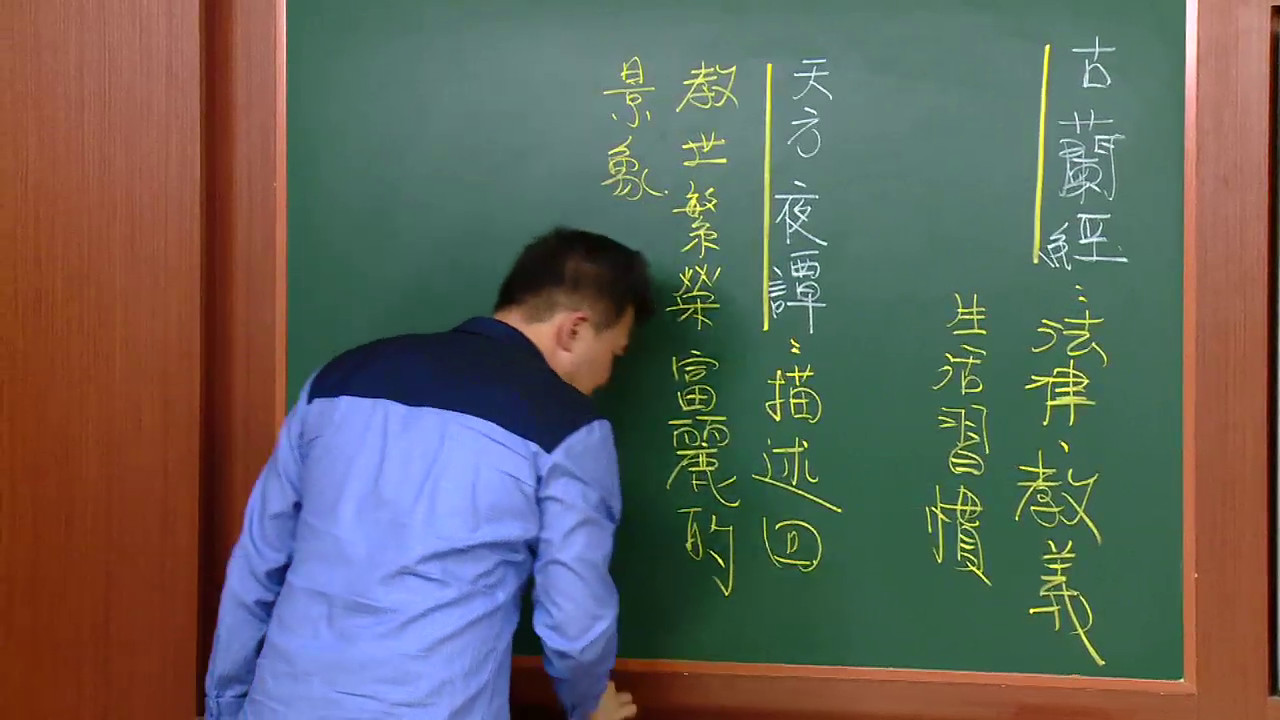 古蘭經：法律、教義
生活習慣
天方夜譚：描述回
教世繁榮富麗的
景象